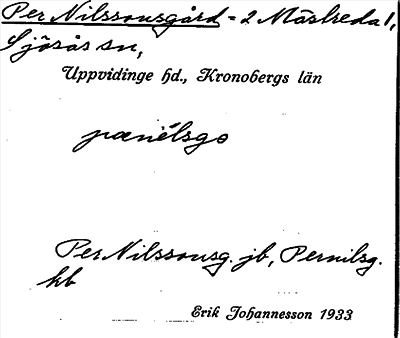 Per Nilssonsgård = 2 Måslreda 1,
Sjösås sn,
Uppvidinge hd., Kronobergs län
pænélsgo
Per Nilssonsg. jb, Pernilsg.
kb
Erik Johannesson 1933